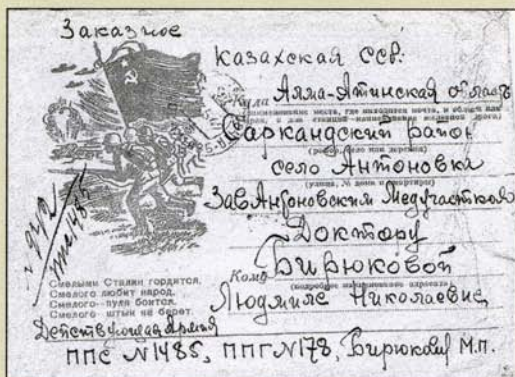 Заказное
Казахская ССР.
Куда Алма-Атинская область
Саркандский район
село Антоновка
(улица, № дома и квартиры)
Зав Антоновским Медучастком
Доктору
Кому Бирюковой
(подробное наименование адресата)
Людмиле Николаевне
Смелыми Сталин гордится,
Смелого любит народ.
Смелого - пуля боится.
Смелого - штык не берет.
Действующая Армия
ППС №1485, ППГ №178, Бирюков М.П.